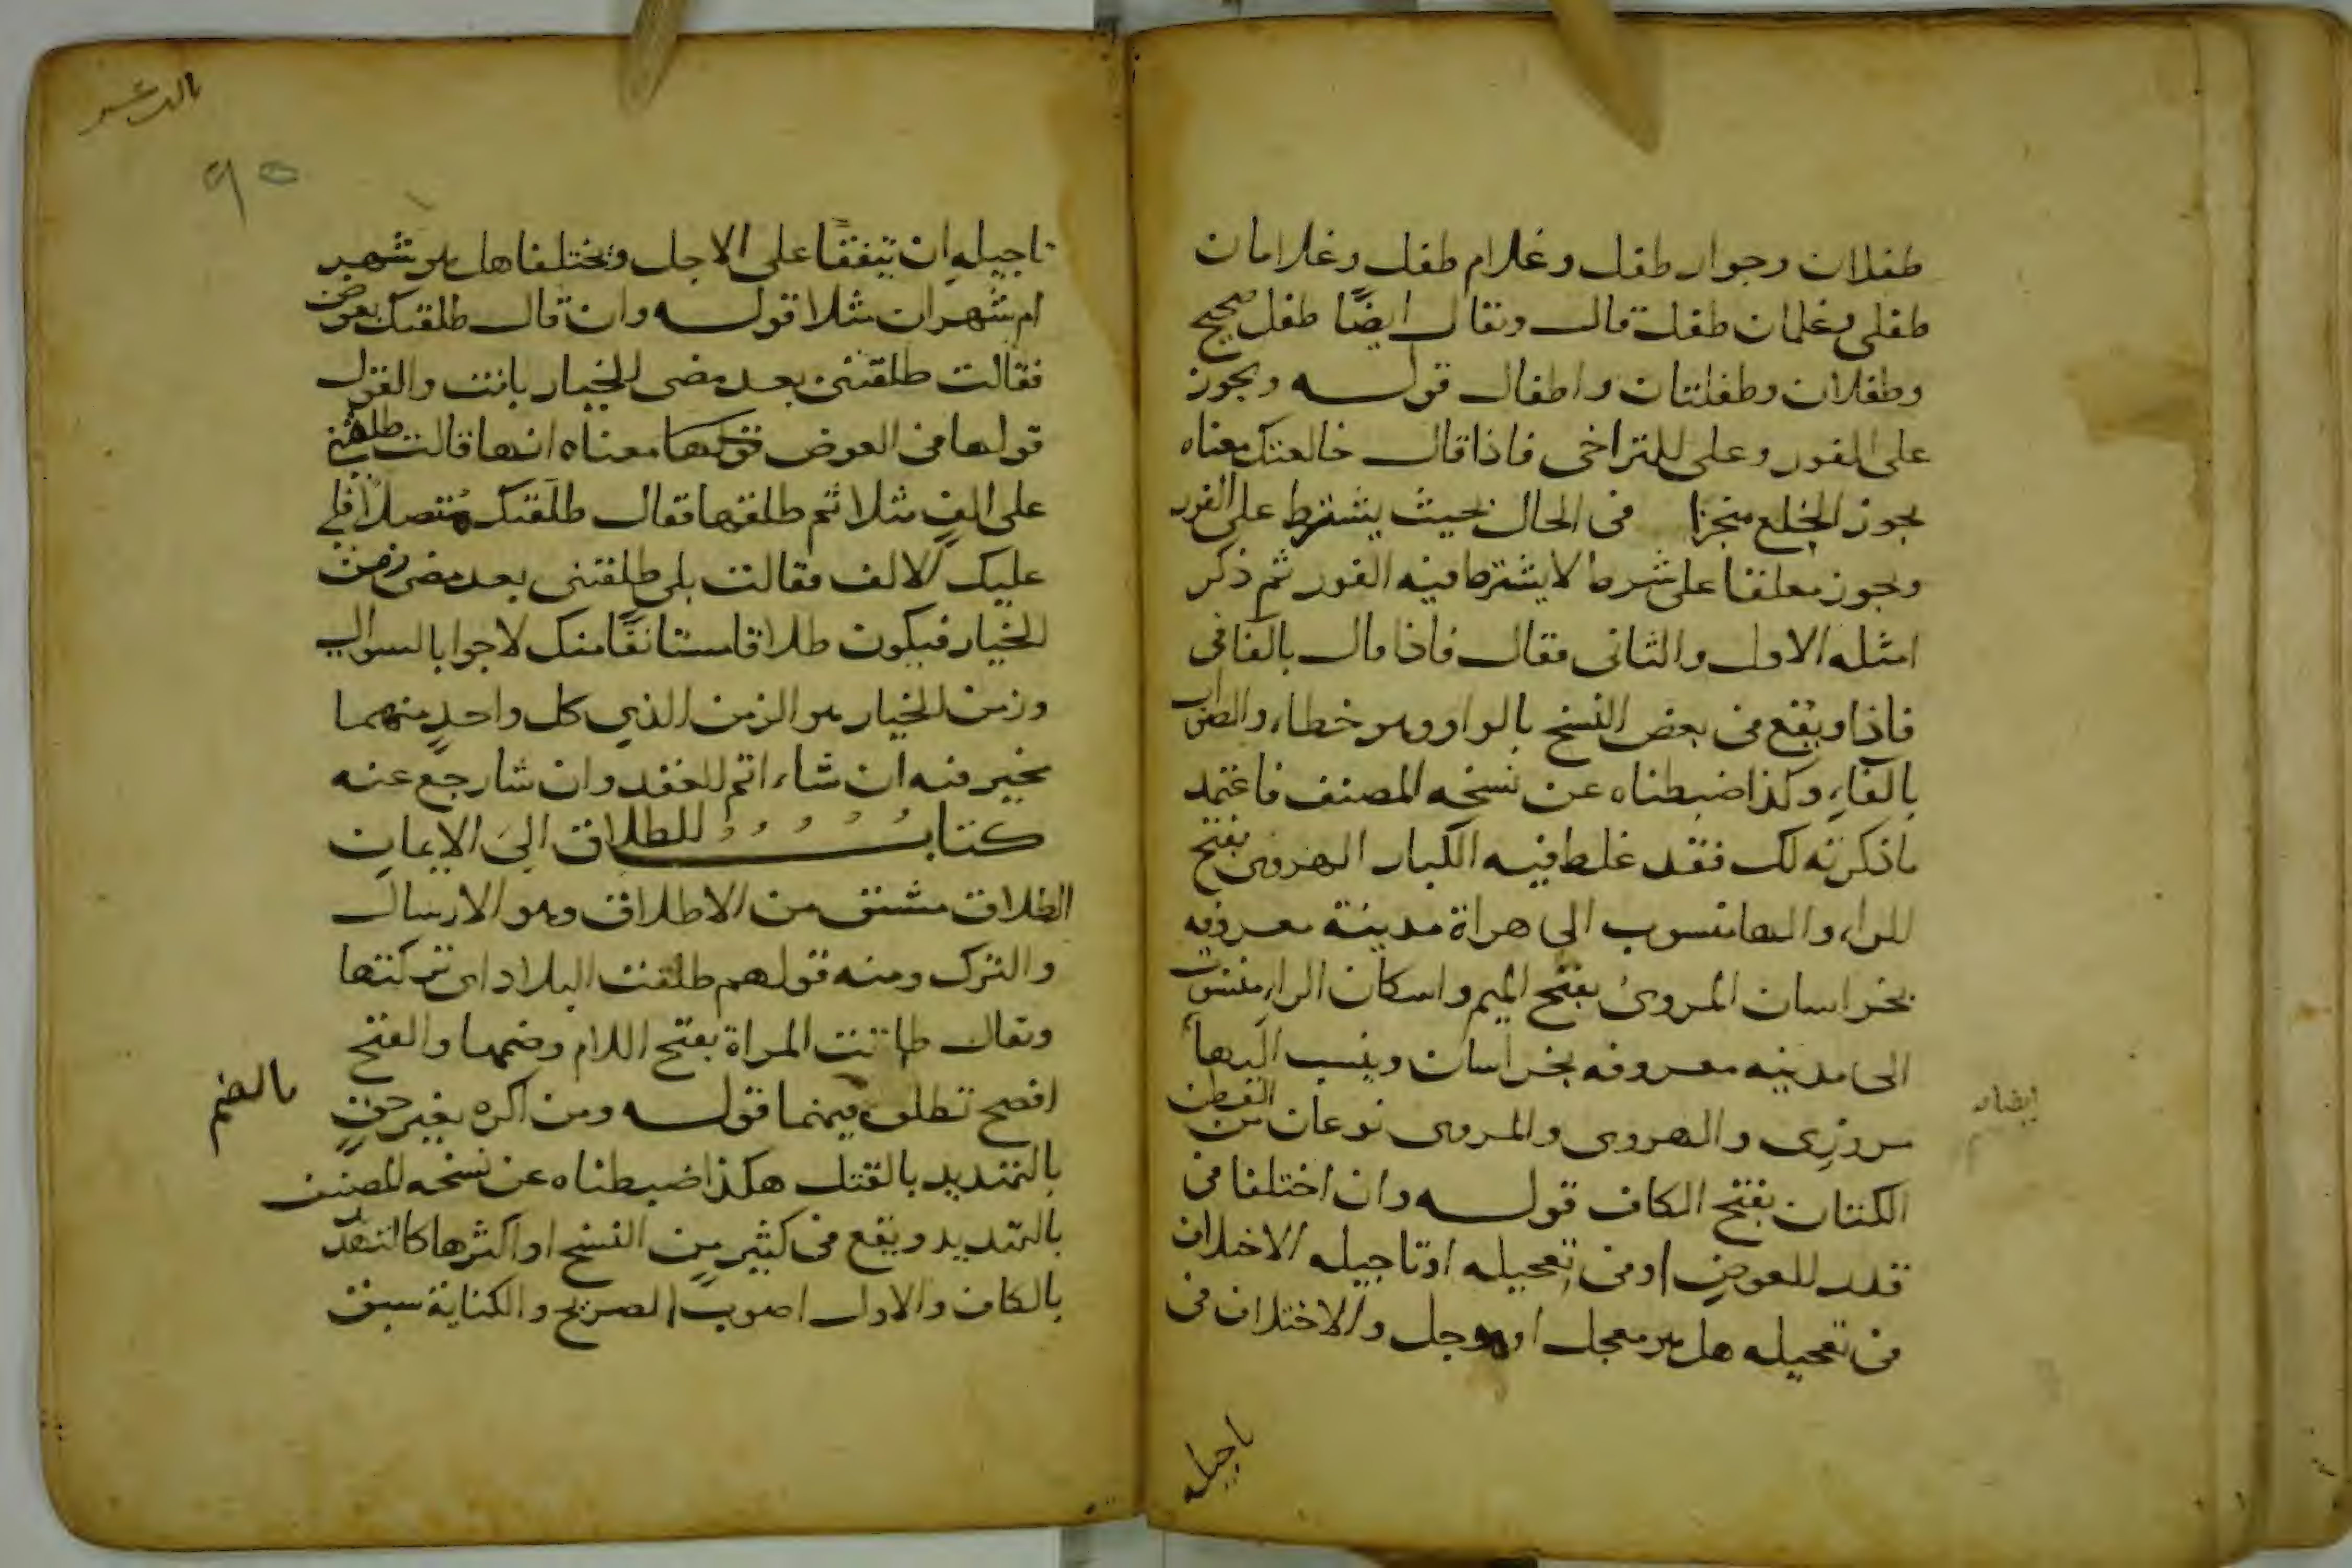 طفلان وجوار طفل وغلام طفل وغلامان
طفلى وغلمان طفل قال ويقال ايضًا طفل صحيح
وطفلان وطفلتان واطفال قوله ويجوز
على الفور وعلى التراخى فاذا قال خالعتك معناه
يجوز الخلع منجزا فى الحال بحيث يشترط على الفور
ويجوز معلقا على شرط لا يشترط فيه الفور ثم ذكر
امثله الاول والثانى فقال فاذا قال بالفا فى
فاذا ويقع فى بعض النسخ بالواو وهو خطاء والصواب
بالفاءِ وكذا ضبطناه عن نسخه المصنف فاعتمد
ماذكرته لك فقد غلط فيه الكبار الهروى بفتح
الراء والها منسوب الى هراة مدينة معروفه
بخراسان المروىُ بفتح الميم واسكان الراءِ منسوب
الى مدينه معروفه بخراسان وينسب اليها
ايضا
مروزى والهروى والمروى نوعان من القطن
الكتان بفتح الكاف قوله وان اختلفا فى
قدر العوضِ او فى تعجيله او تاجيله الاختلاف
فى تعجيله هل هو معجل او موجل والاختلاف فى
تاجيله
بالد عسر
٩٥
تاجيلهِ ان يتفقا على الاجل ويختلفا هل هو شهر
ام شهران مثلا قوله وان قال طلقتك بعوض
فقالت طلقتنى بعد مضى الخيار بانت والقول
قولها فى العوض قولها معناه انها قالت طلقنى
على الفٍ مثلا ثم طلقها فقال طلقتك متصلاً فلى
عليك الالف فقالت بلى طلقتنى بعد مضى زمن
الخيار فيكون طلاقا مستانفًا منك لا جوابا لسوال
وزمن الخيار هو الزمن الذي كل واحدٍ منهما
مخير فيه ان شاء اتم العقد وان شا رجع عنه
كتابُ الطلاق الىَ الايمانِ
الطلاق مشتق من الاطلاق وهو الارسال
والترك ومنه قولهم طلقت البلاد اى تركتها
ويقال طلقت المراة بفتح اللام وضمها والفتح
افصح تطلق فيهما قوله ومن اكره بغير حقٍ
بالضم
بالتهديد بالقتل هكذا ضبطناه عن نسخه المصنف
بالتهديد ويقع فى كثيرٍ من النسخ او اكثرها كالتهديد
بالكاف والاول اصوب الصريح والكناية سبق